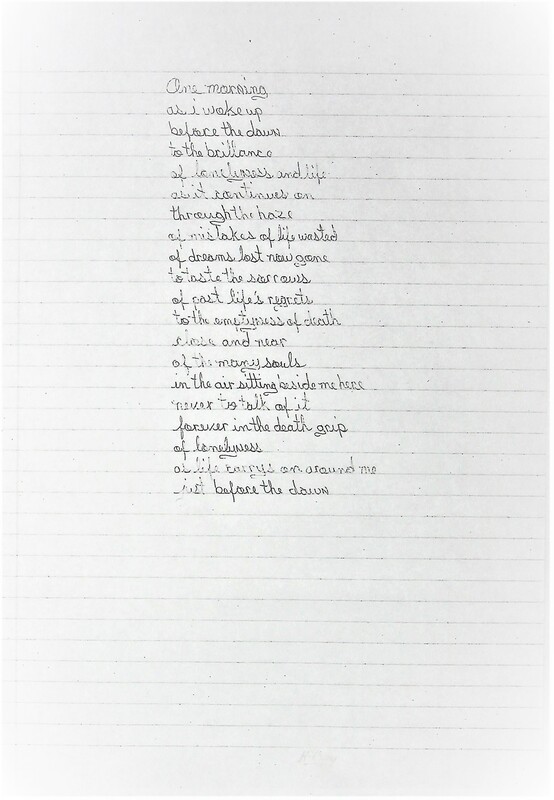 One morning
as i wake up
before the dawn
to the brillance
of lonelyness and life
as it continues on
through the haze
of mistakes of life wasted
of dreams lost now gone
to taste the sorrows
of past life's regrets
to the emptyness of death
close and near
of the many souls
in the air sitting beside me here
never to talk of it
forever in the death grip
of lonelyness
as life carrys on around me
just before the dawn